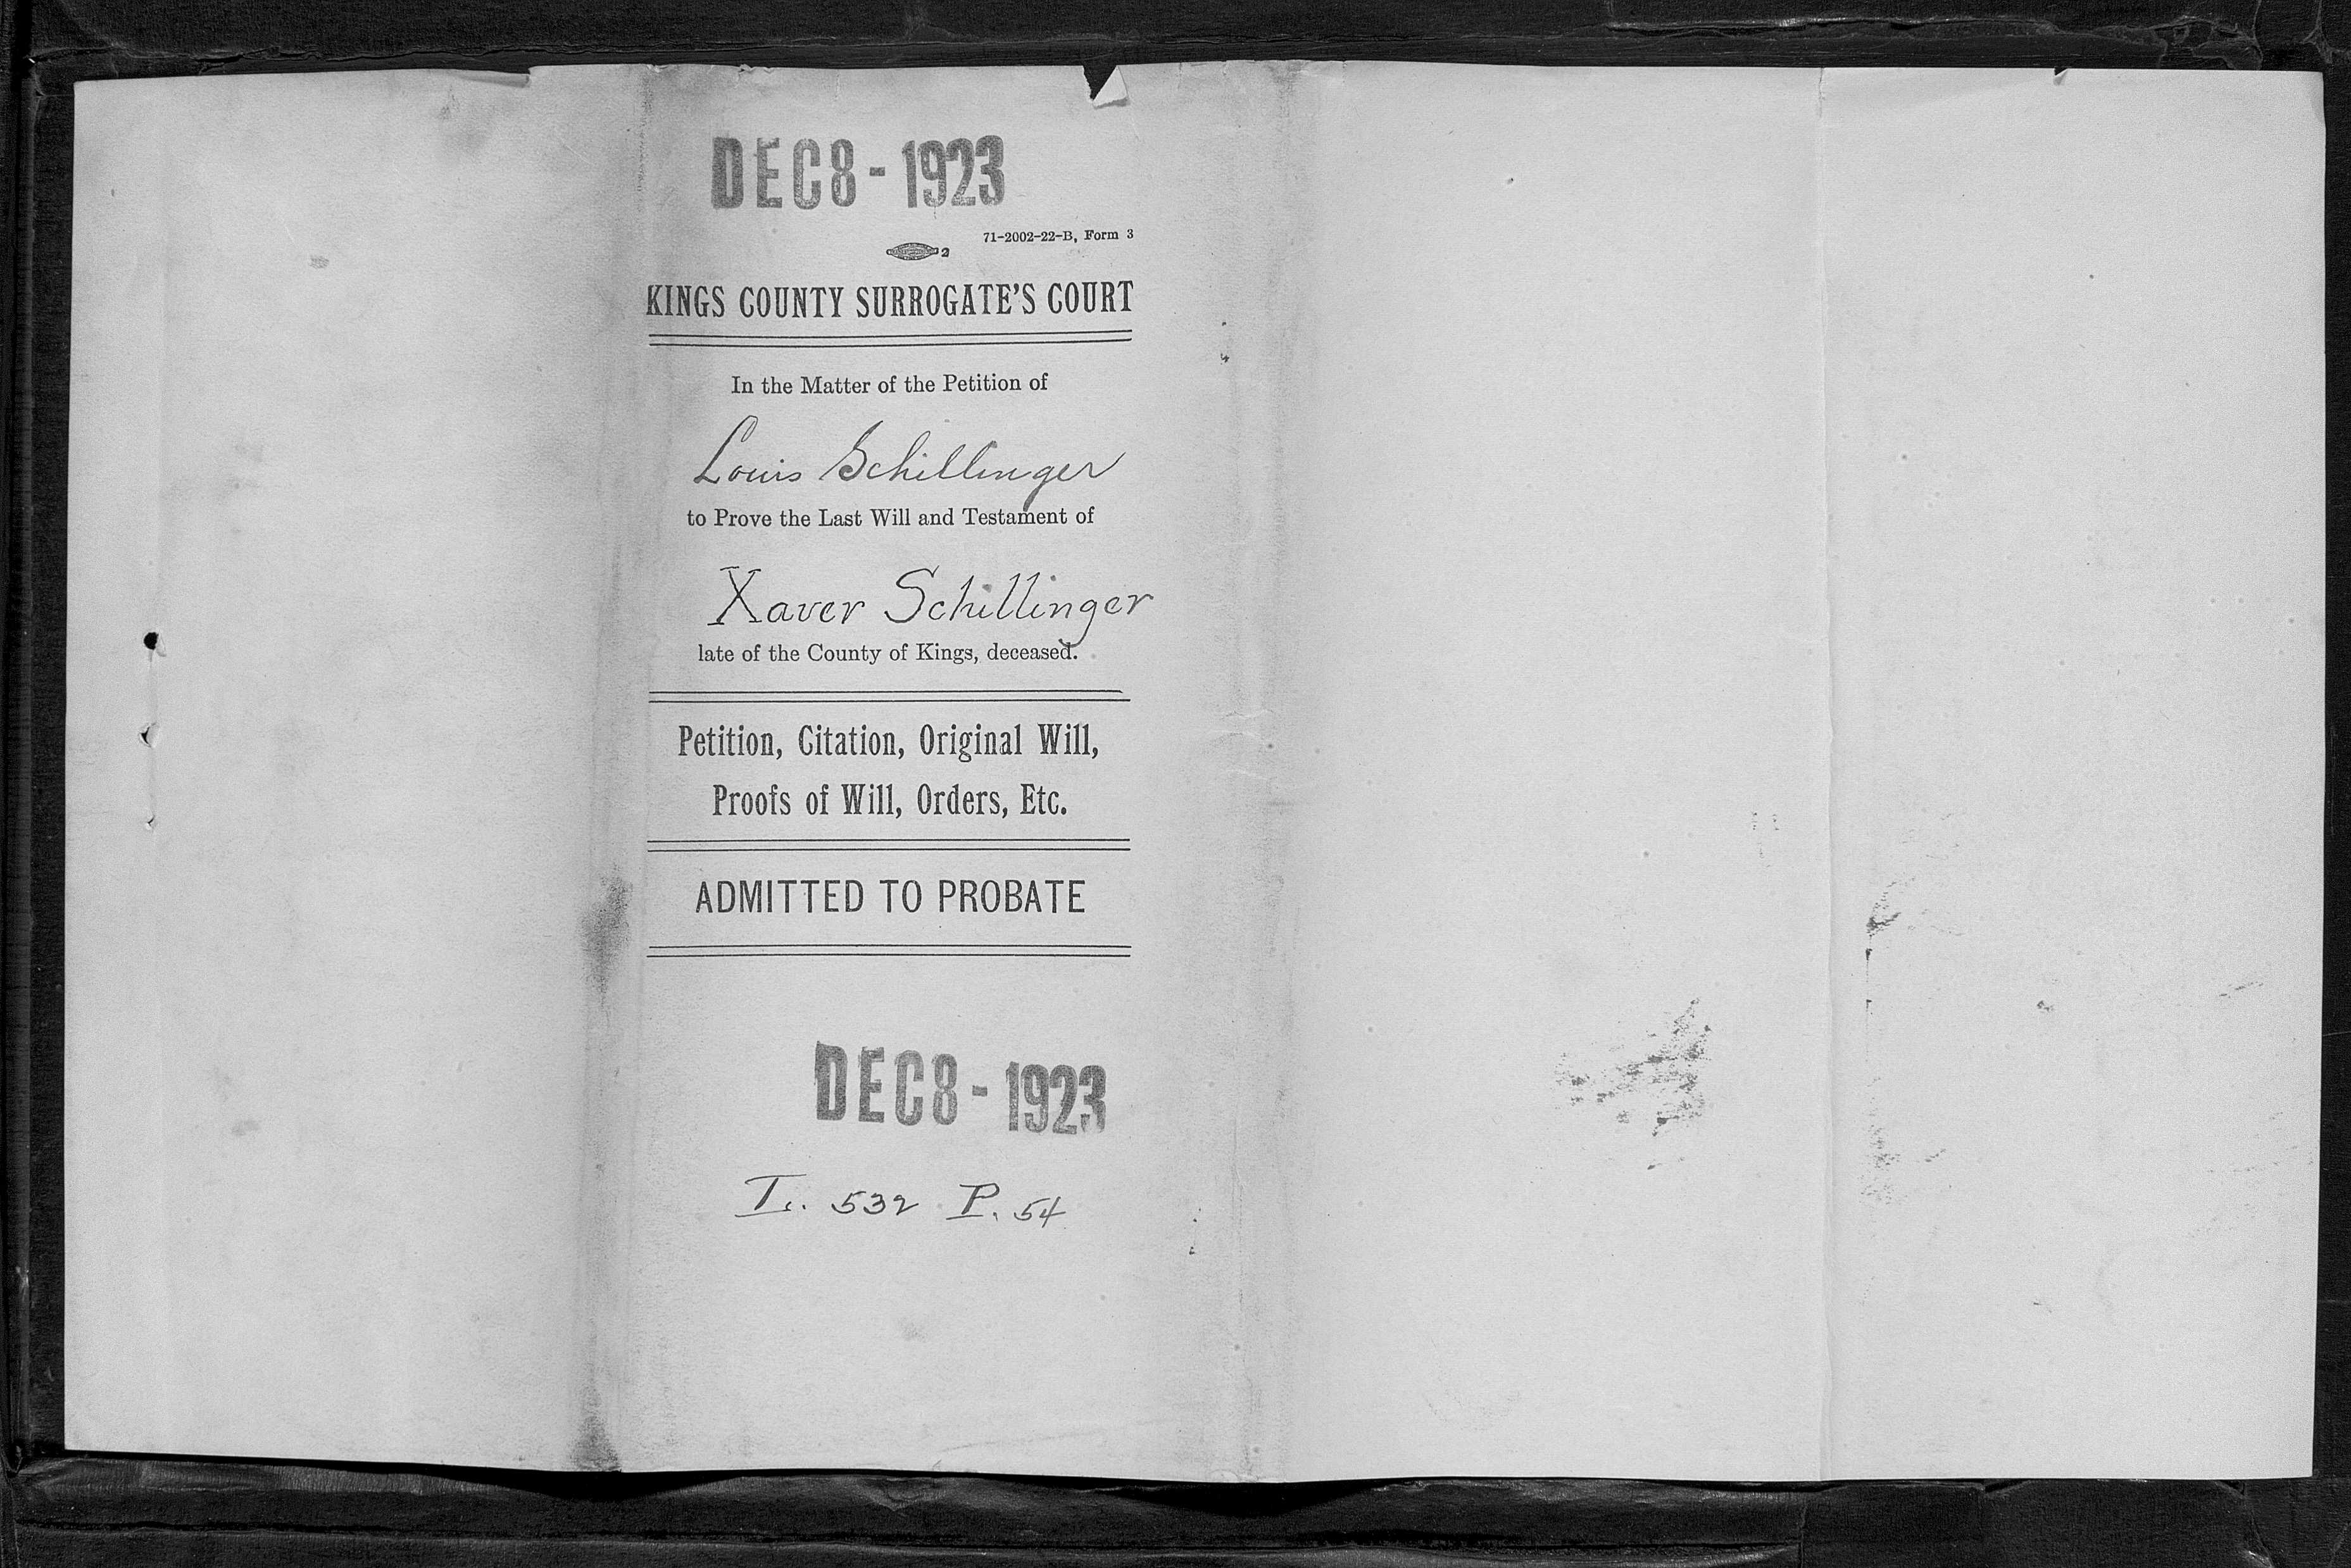 DEC 8 - 1923
71-2002-22-B, Form 3
2
KINGS COUNTY SURROGATE'S COURT
In the Matter of the Petition of
Louis Schillinger
to Prove the Last Will and Testament of
Xaver Schillinger
late of the County of Kings, deceased.
Petition, Citation, Original Will,
Proofs of Will, Orders, Etc.
ADMITTED TO PROBATE
DEC 8 - 1923
L. 532 P. 54